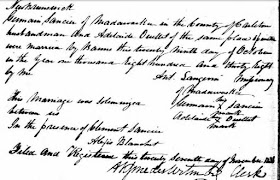 New Brunswick
Germain Sancin of Madawaska in the County of Carleton
husbandman and Adelaide Ouellet of the same place Spinster
were married by Banns the twenty ninth day of October
in the year one thousand eight hundred and thirty eight
by me Ant Missionary
of Madawaska
This Marriage was solemnized Germain Sancin
between us mark
Adelaide Ouellet
In the presence of Clement Sancin mark
Blanchet
Filed and Registered this twenty seventh day of November 1838
Clerk